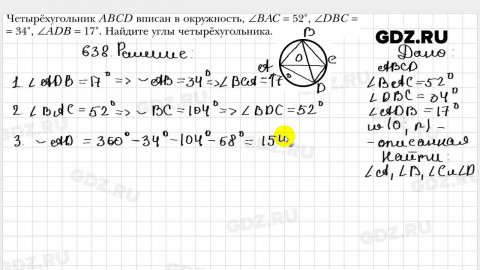 Четырёхугольник ABCD вписан в окружность, ∠BAC = 52°, ∠DBC =
= 34°, ∠ADB = 17°. Найдите углы четырёхугольника.
GDZ.RU
638. Решение:
B
A
O
C
D
1 ∠ADB = 17° => ◡AB = 34° => ∠BCA = 17°
2. ∠BAC = 52° => ◡BC = 104° => ∠BDC = 52°
3. ◡AD = 360° - 34° - 104° - 68° = 154°
Дано:
ABCD
∠BAC = 52°
∠DBC = 34°
∠ADB = 17°
w (O, r) -
- описанная
Найти:
∠A, ∠B, ∠C и ∠D
GDZ.RU